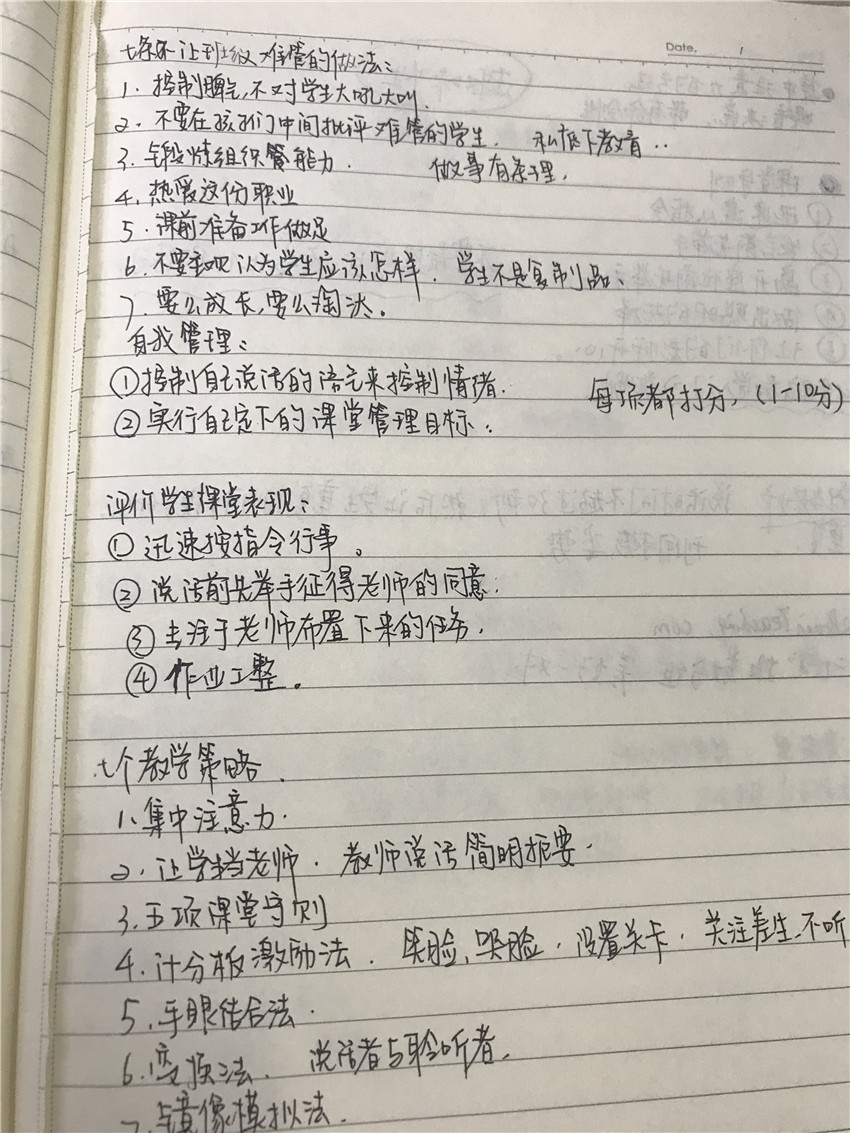 Date.
七条不让班级难管的做法：
1. 控制脾气，不对学生大吼大叫．
2. 不要在孩子们中间批评难管的学生． 私底下教育．．
3. 锻炼组织管能力． 做事有条理．
4. 热爱这份职业
5. 课前准备工作做足
6. 不要主观认为学生应该怎样．学生不是复制品．
7. 要么成长，要么淘汰。
自我管理：
①控制自己说话的语气来控制情绪． 每项都打分，(1-10分)
②实行自己定下的课堂管理目标．
评价学生课堂表现：
① 迅速按指令行事。
② 说话前先举手征得老师的同意．
③ 专注于老师布置下来的任务．
④ 作业工整。
七个教学策略．
1. 集中注意力．
2. 让学当老师．教师说话简明扼要．
3. 五项课堂守则
4. 计分板激励法． 笑脸、哭脸．设置关卡．关注差生、不听
5. 手眼结合法．
6. 变换法． 说话者与聆听者．
7. 镜像模拟法．